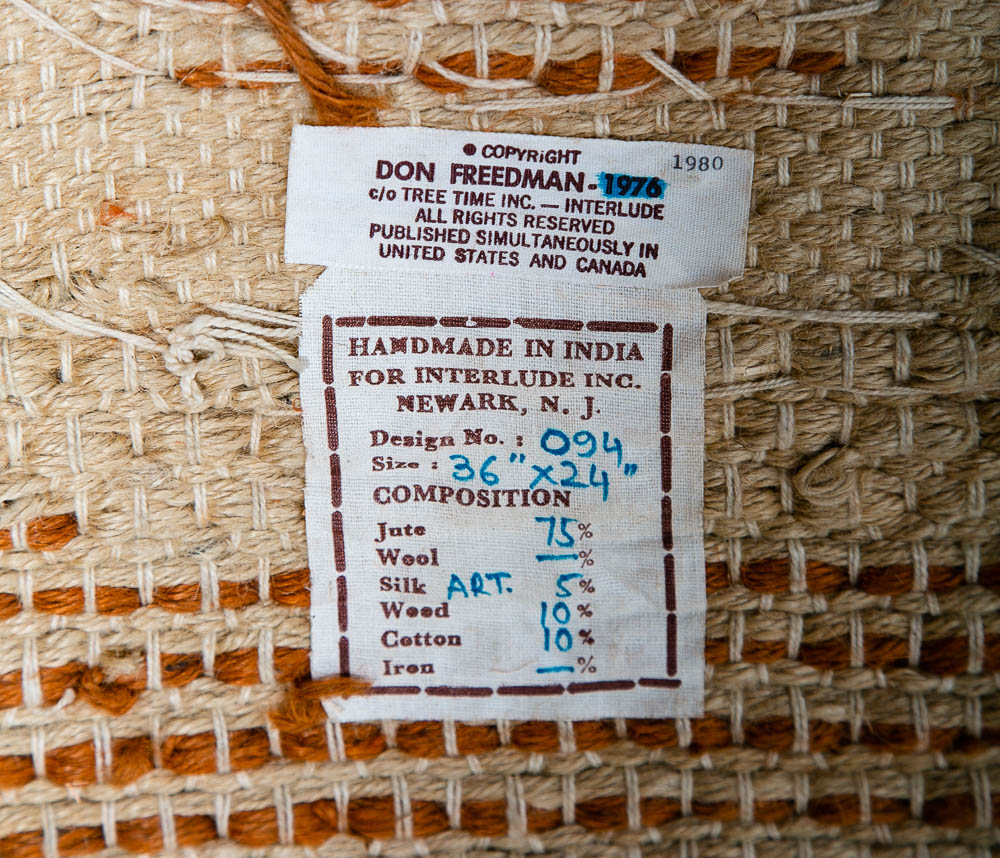 ● COPYRiGHT 1980
DON FREEDMAN - 1976
c/o TREE TIME INC. — INTERLUDE
ALL RIGHTS RESERVED
PUBLISHED SIMULTANEOUSLY IN
UNITED STATES AND CANADA
HANDMADE IN INDIA
FOR INTERLUDE INC.
NEWARK, N. J.
Design No. : 094
Size : 36" x 24"
COMPOSITION
Jute 75%
Wool —%
Silk ART. 5%
Wood 10%
Cotton 10%
Iron —%